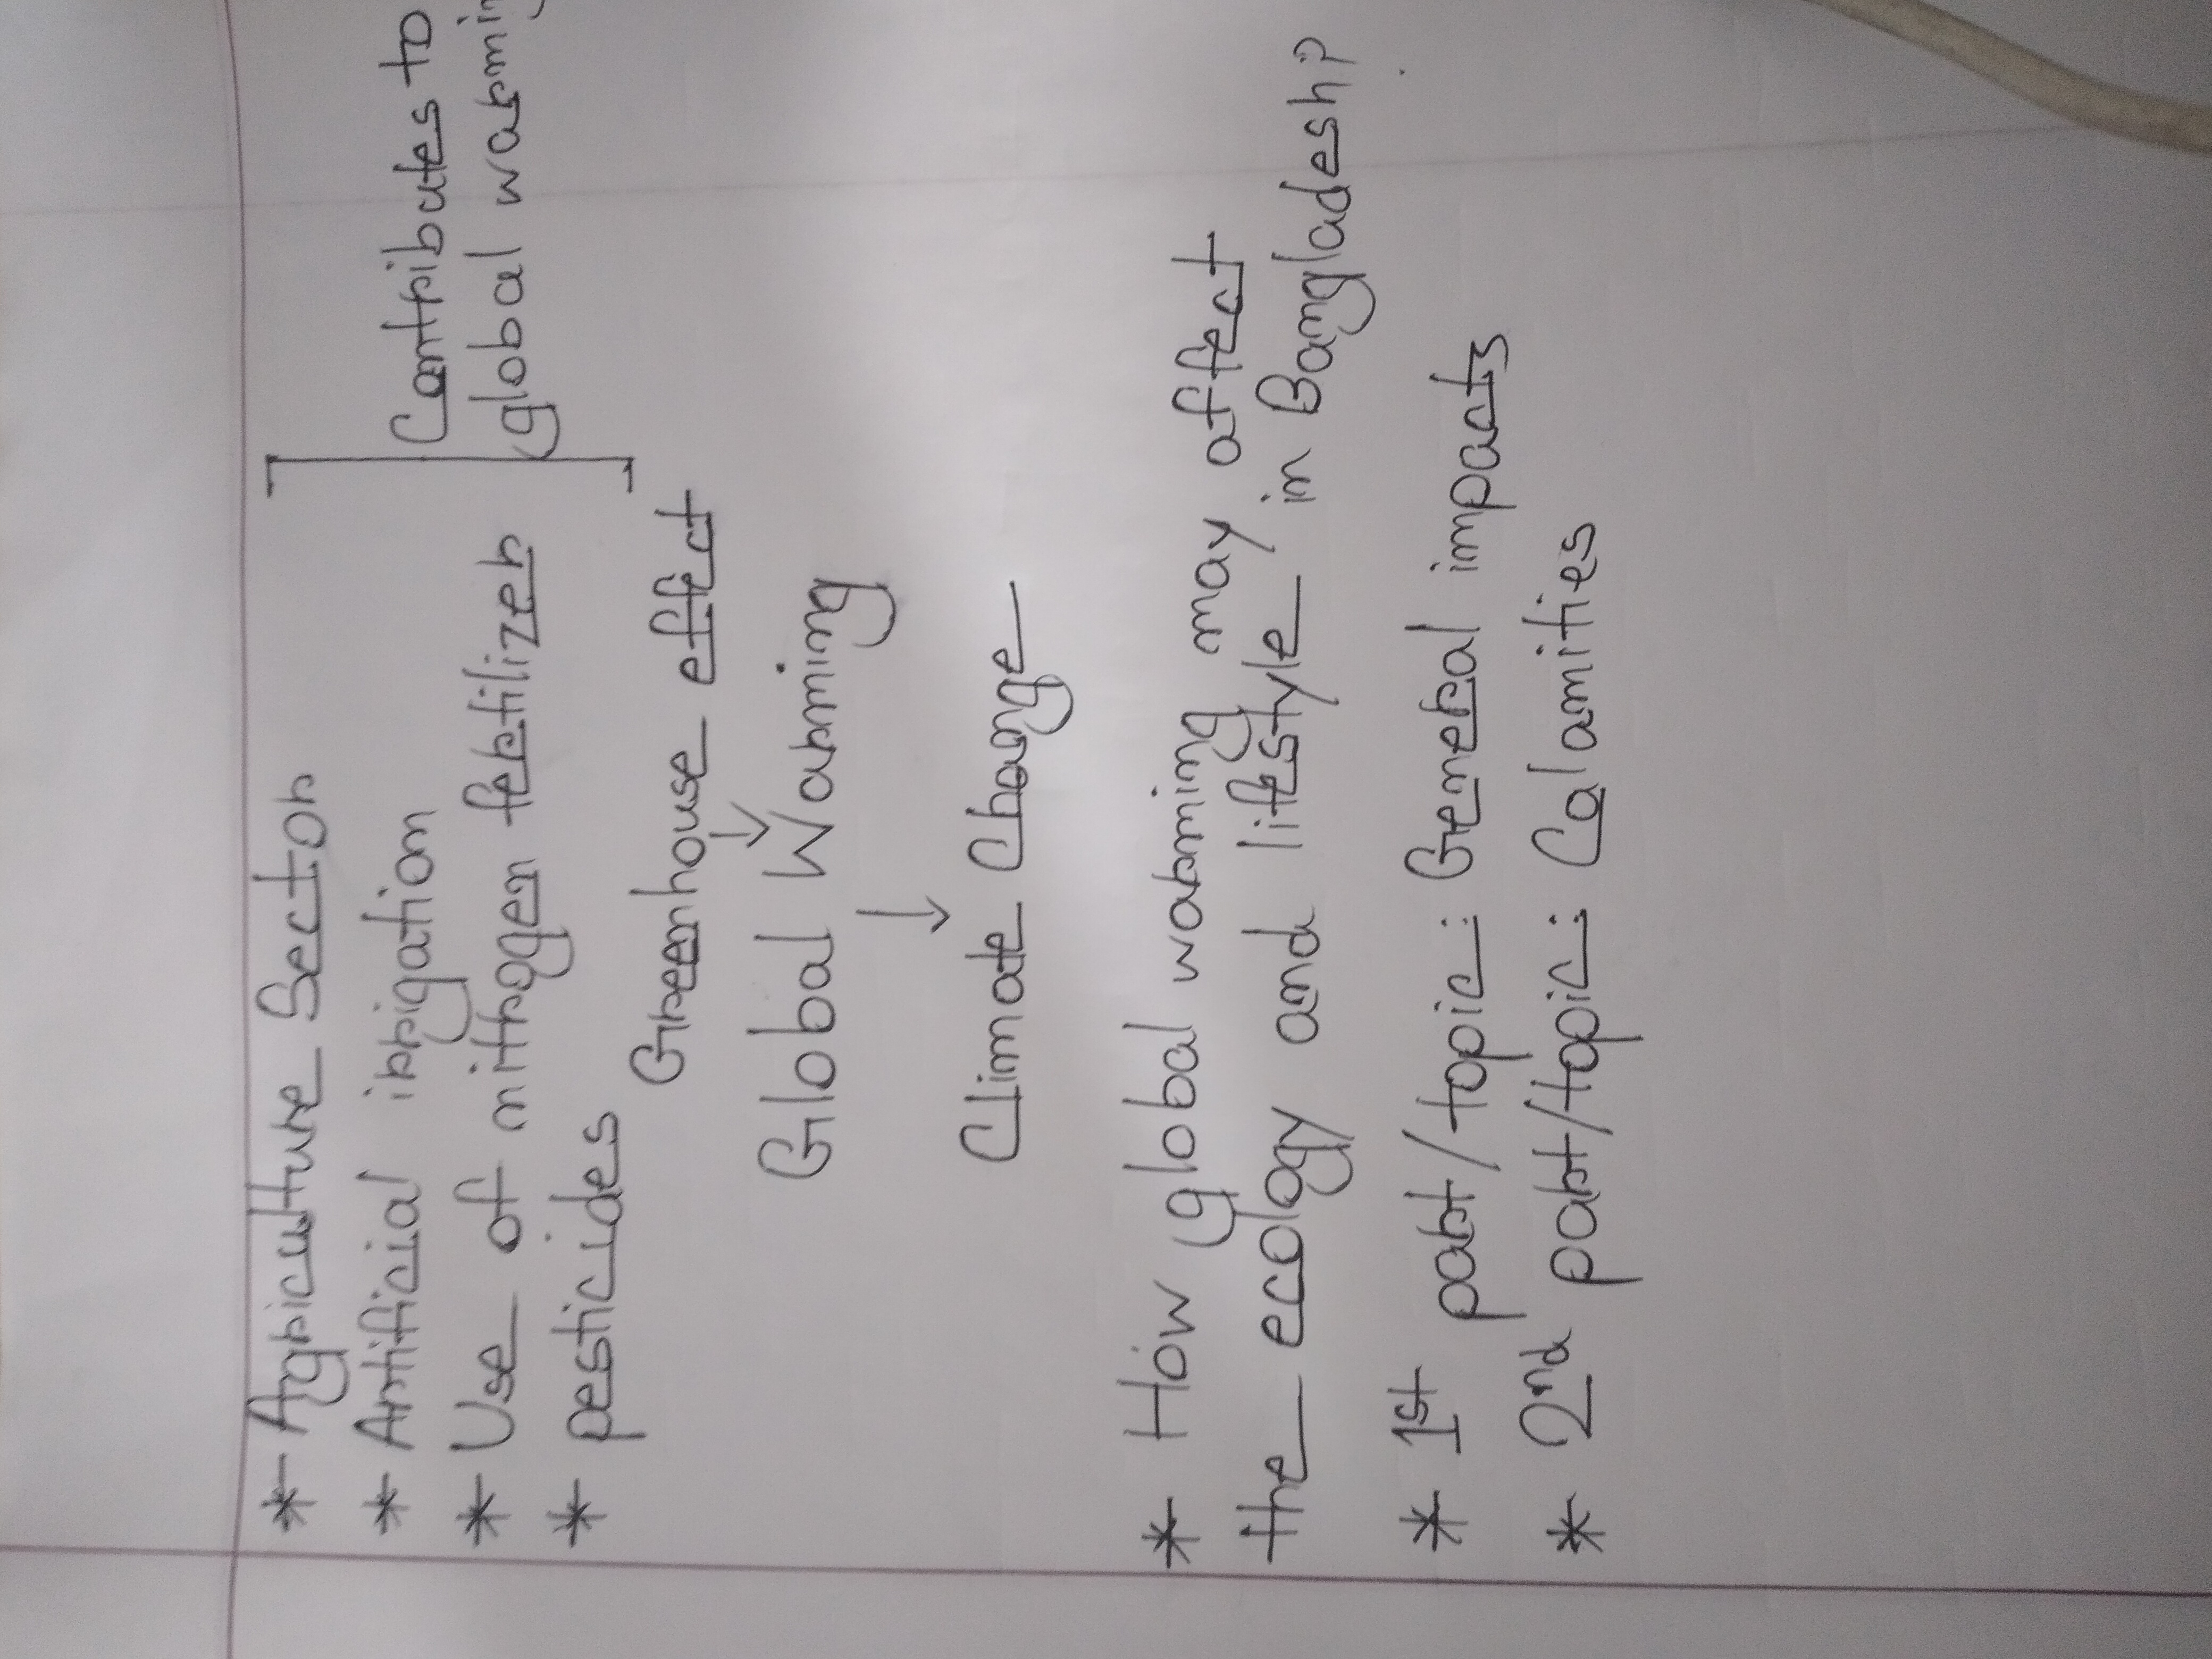 * Agriculture Sector
* Artificial irrigation
* Use of nitrogen fertilizer
* pesticides
] Contributes to
global warming
Greenhouse effect
↓
Global Warming
↓
Climate Change
* How global warming may affect
the ecology and lifestyle in Bangladesh?
* 1st part/topic: General impacts
* 2nd part/topic: Calamities